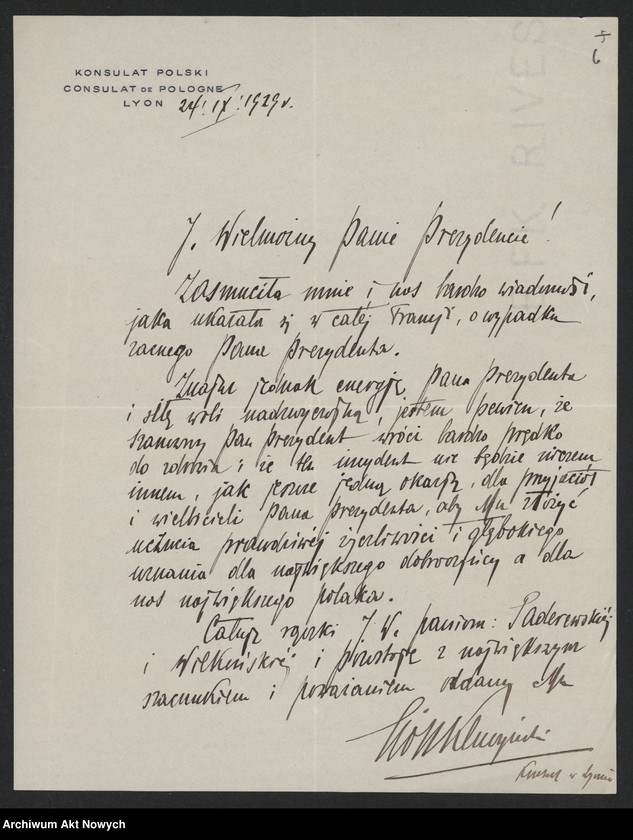 5
6
KONSULAT POLSKI
CONSULAT DE POLOGNE
LYON 24! IX! 1929 r.
BFK RIVES
J. Wielmożny Panie Prezydencie!
Zasmuciła mnie i nas bardzo wiadomość,
jaka ukazała się w całej Francji, o wypadku
zacnego Pana Prezydenta.
Znając jednak energję Pana Prezydenta
i siłę woli nadzwyczajną, jestem pewien, że
szanowny Pan Prezydent wróci bardzo prędko
do zdrowia i że ten incydent nie będzie niczem
innem, jak jeszcze jedną okazją, dla przyjaciół
i wielbicieli Pana Prezydenta, aby Mu złożyć
uczucia prawdziwej życzliwości i głębokiego
uznania dla największego dobroczyńcy a dla
nas największego polaka.
Całuję rączki J. W. paniom: Paderewskiej
i Wilkońskiej i pozostaję z największym
szacunkiem i poważaniem oddany Mu
Konsul w Lyonie
Archiwum Akt Nowych